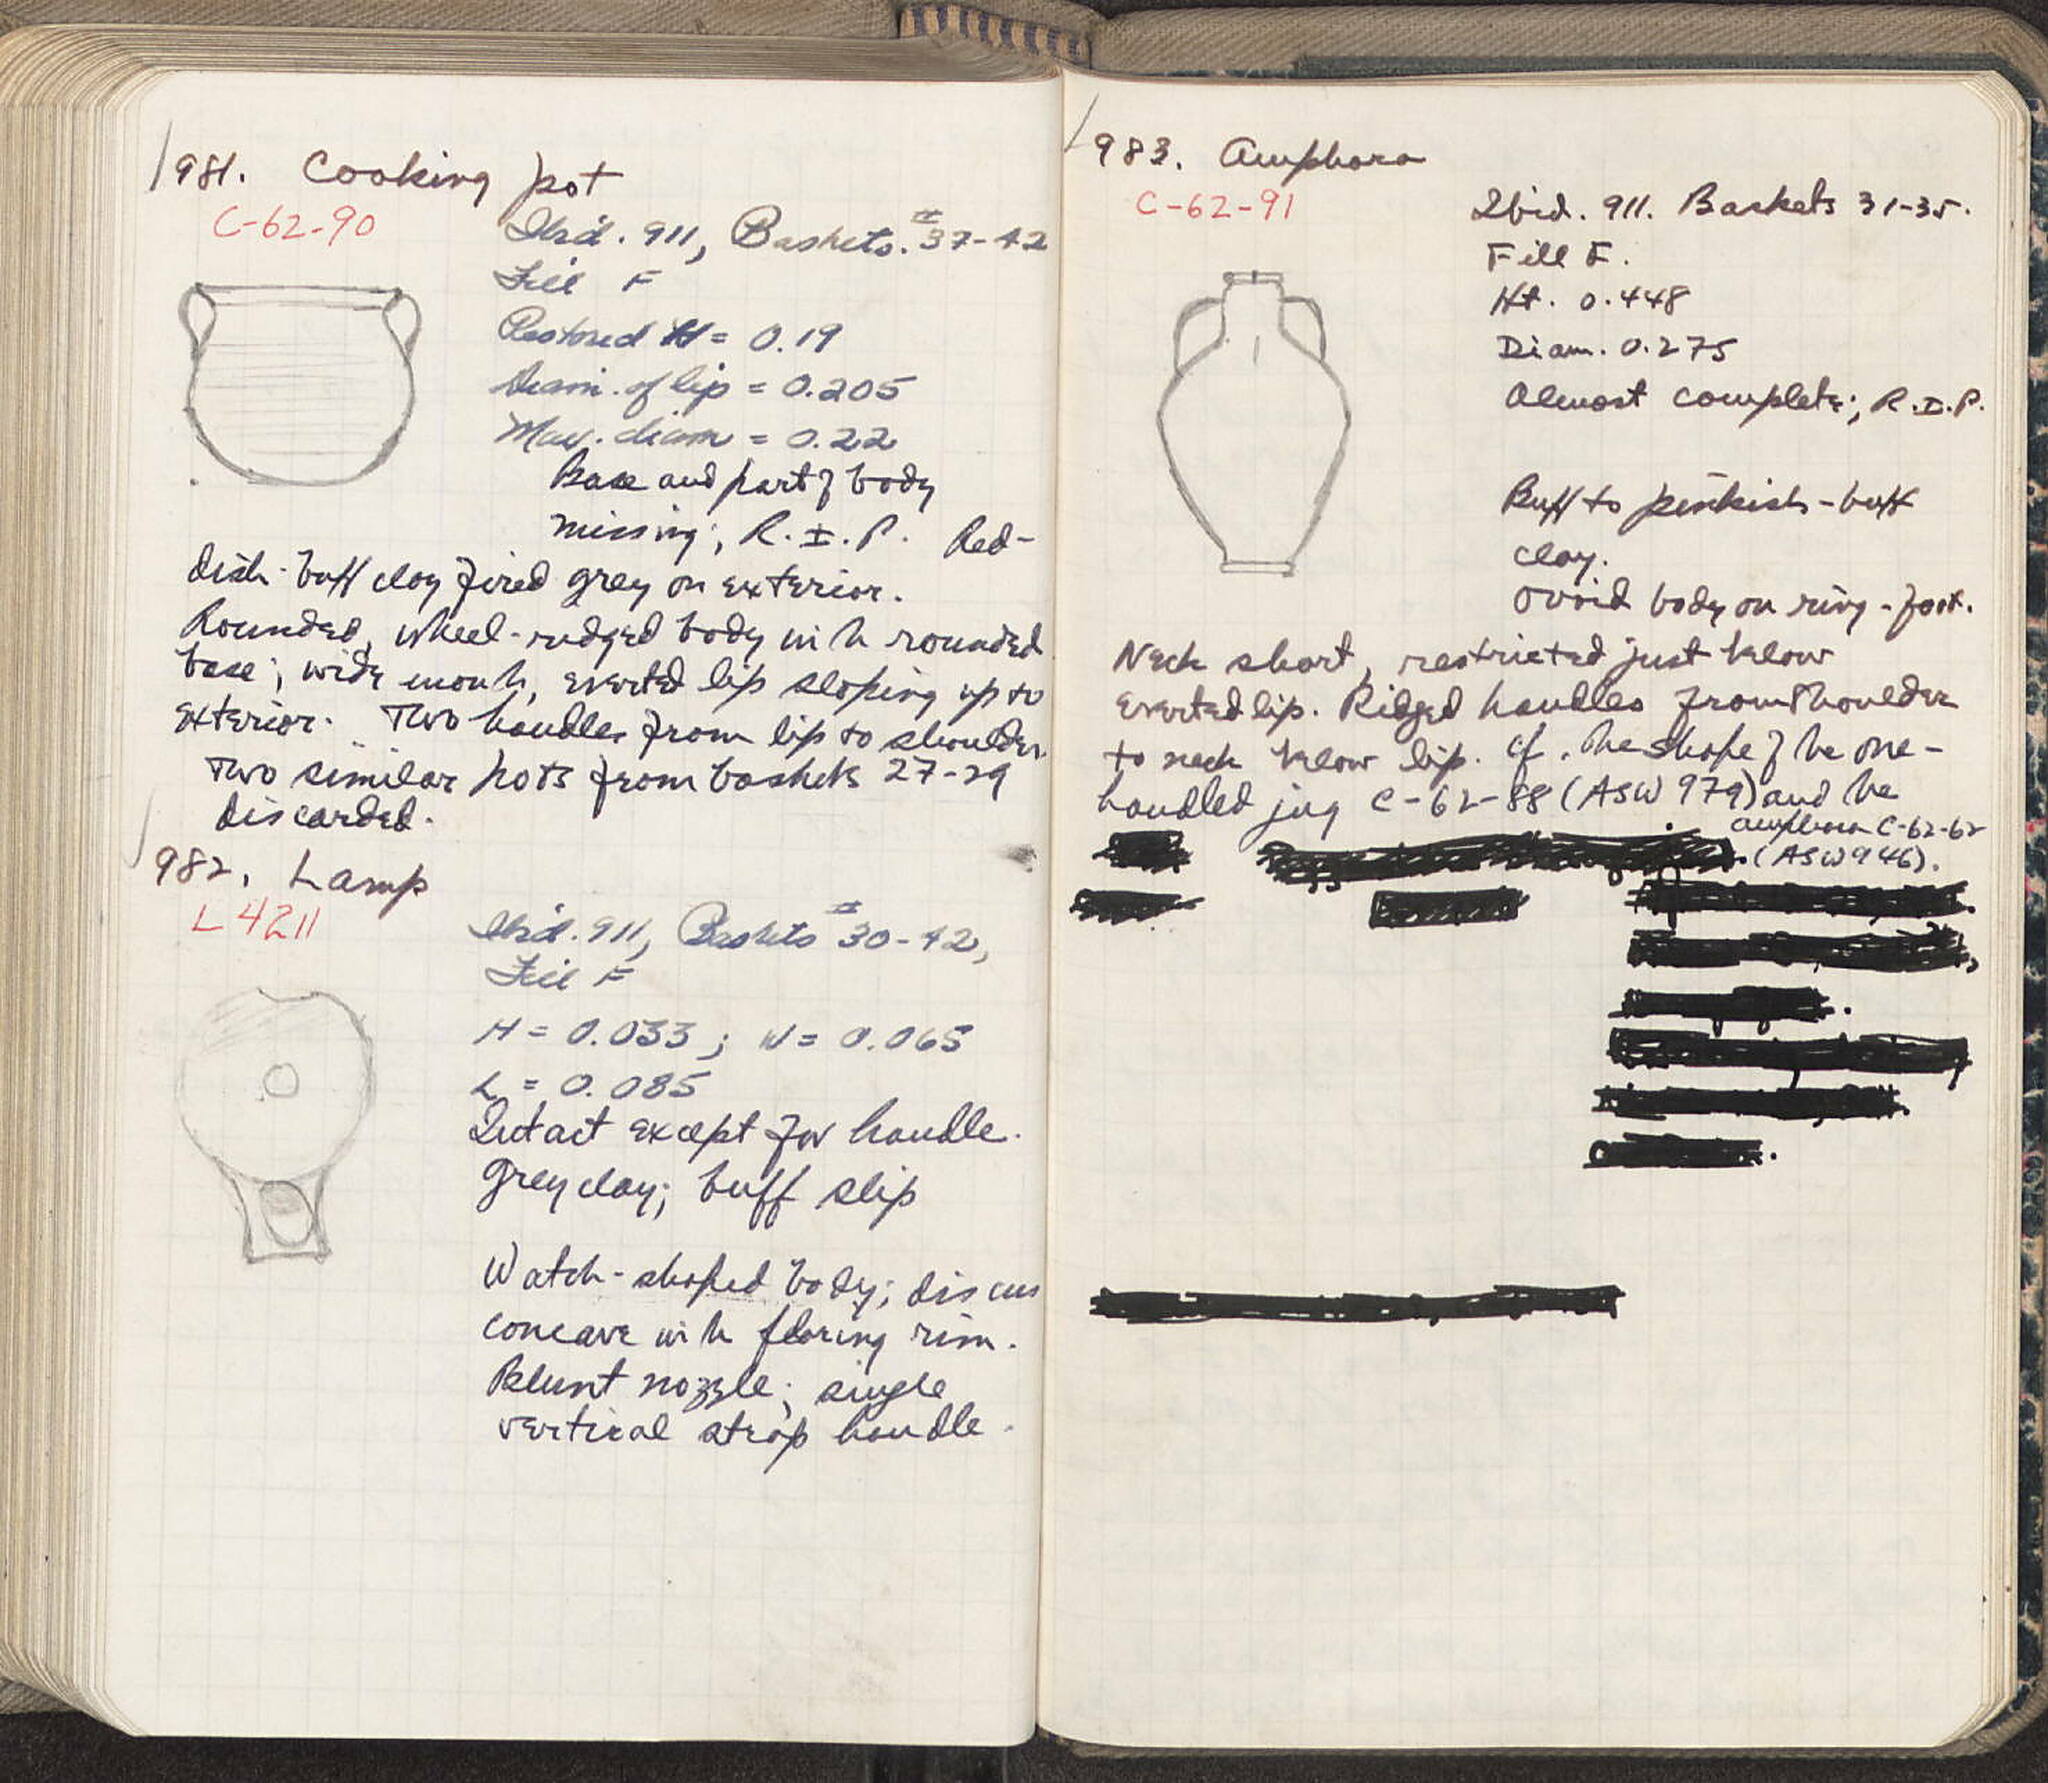 981. Cooking pot
C-62-90
Ibid. 911, Baskets. # 37-42
Fill F
Restored H = 0.19
Diam. of lip = 0.205
Max. diam = 0.22
Base and part of body
missing; R.I.P. Red-
dish-buff clay fired grey on exterior.
Rounded, wheel-ridged body with rounded
base; wide mouth, everted lip sloping up to
exterior. Two handles from lip to shoulder.
Two similar pots from baskets 27-29
discarded.
982. Lamp
L 4211
Ibid. 911, Baskets # 30-42,
Fill F
H = 0.033; W = 0.065
L = 0.085
Intact except for handle.
Grey clay; buff slip
Watch-shaped body; discus
concave with flaring rim.
Blunt nozzle; single
vertical strap handle.
983. Amphora
C-62-91
Ibid. 911. Baskets 31-35.
Fill F.
Ht. 0.448
Diam. 0.275
Almost complete; R.I.P.
Buff to pinkish-buff
clay.
Ovoid body on ring-foot.
Neck short, restricted just below
everted lip. Ridged handles from shoulder
to neck below lip. Cf. the shape of the one-
handled jug C-62-88 (ASW 979) and the
amphora C-62-62
(ASW 946).